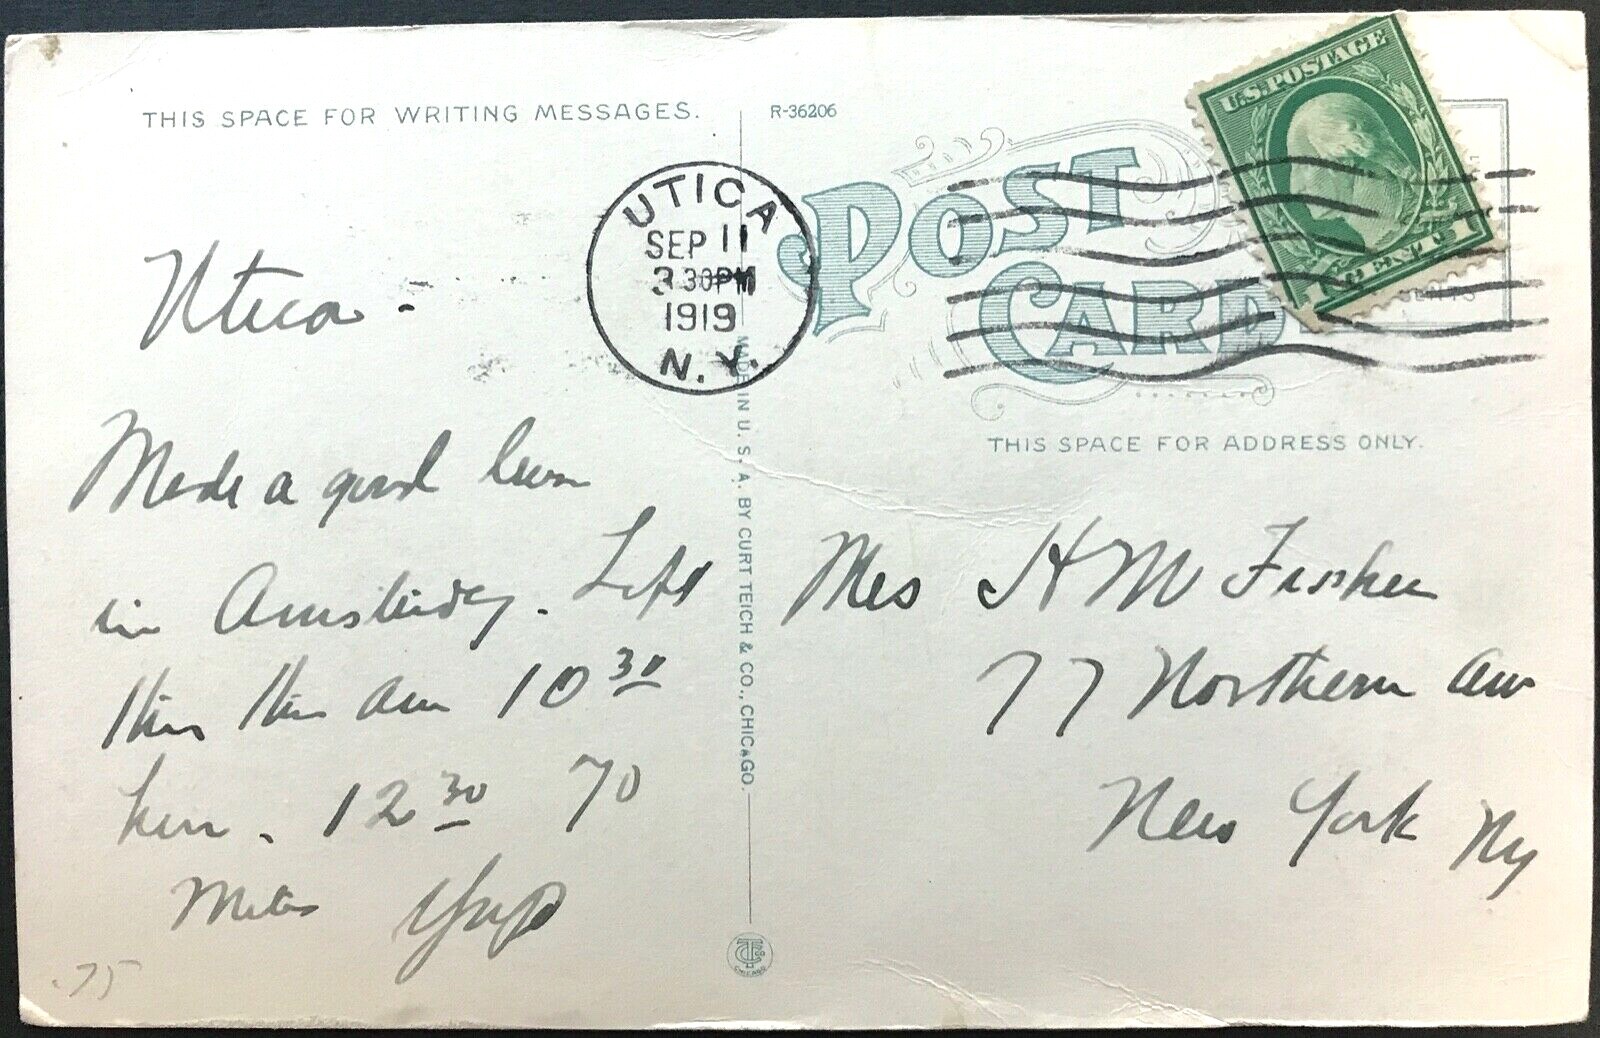 THIS SPACE FOR WRITING MESSAGES.
R-36206
POST CARD
U.S. POSTAGE
1 CENT 1
UTICA
SEP 11
3 30PM
1919
N.Y.
THIS SPACE FOR ADDRESS ONLY.
MADE IN U.S.A. BY CURT TEICH & CO., CHICAGO.
Utica -
Made a good
in Amsterdam. Left
this this am 10 30
here. 12 30 70
miles
.75
Mrs H M Fischer
77 Northern Ave
New York Ny
CHICAGO